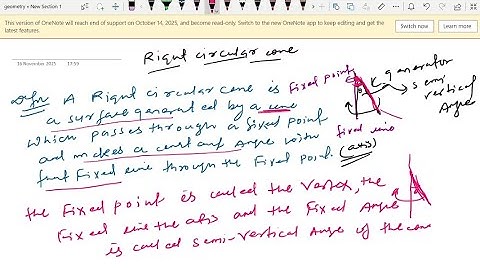 geometry • New Section 1
This version of OneNote will reach end of support on October 14, 2025, and become read-only. Switch to the new OneNote app to keep editing and get the latest features.
Switch now
Learn more
Right circular cone
16 November 2025 17:59
Defn A Right circular cone is
a surface generated by a line
which passes through a fixed point
and makes a constant Angle with
that Fixed line through the Fixed point.
Fixed point
generator
semi
vertical
Angle
fixed line
(axis)
the Fixed point is called the Vertex, the
Fixed line the axis and the Fixed Angle
is called semi-vertical Angle of the cone